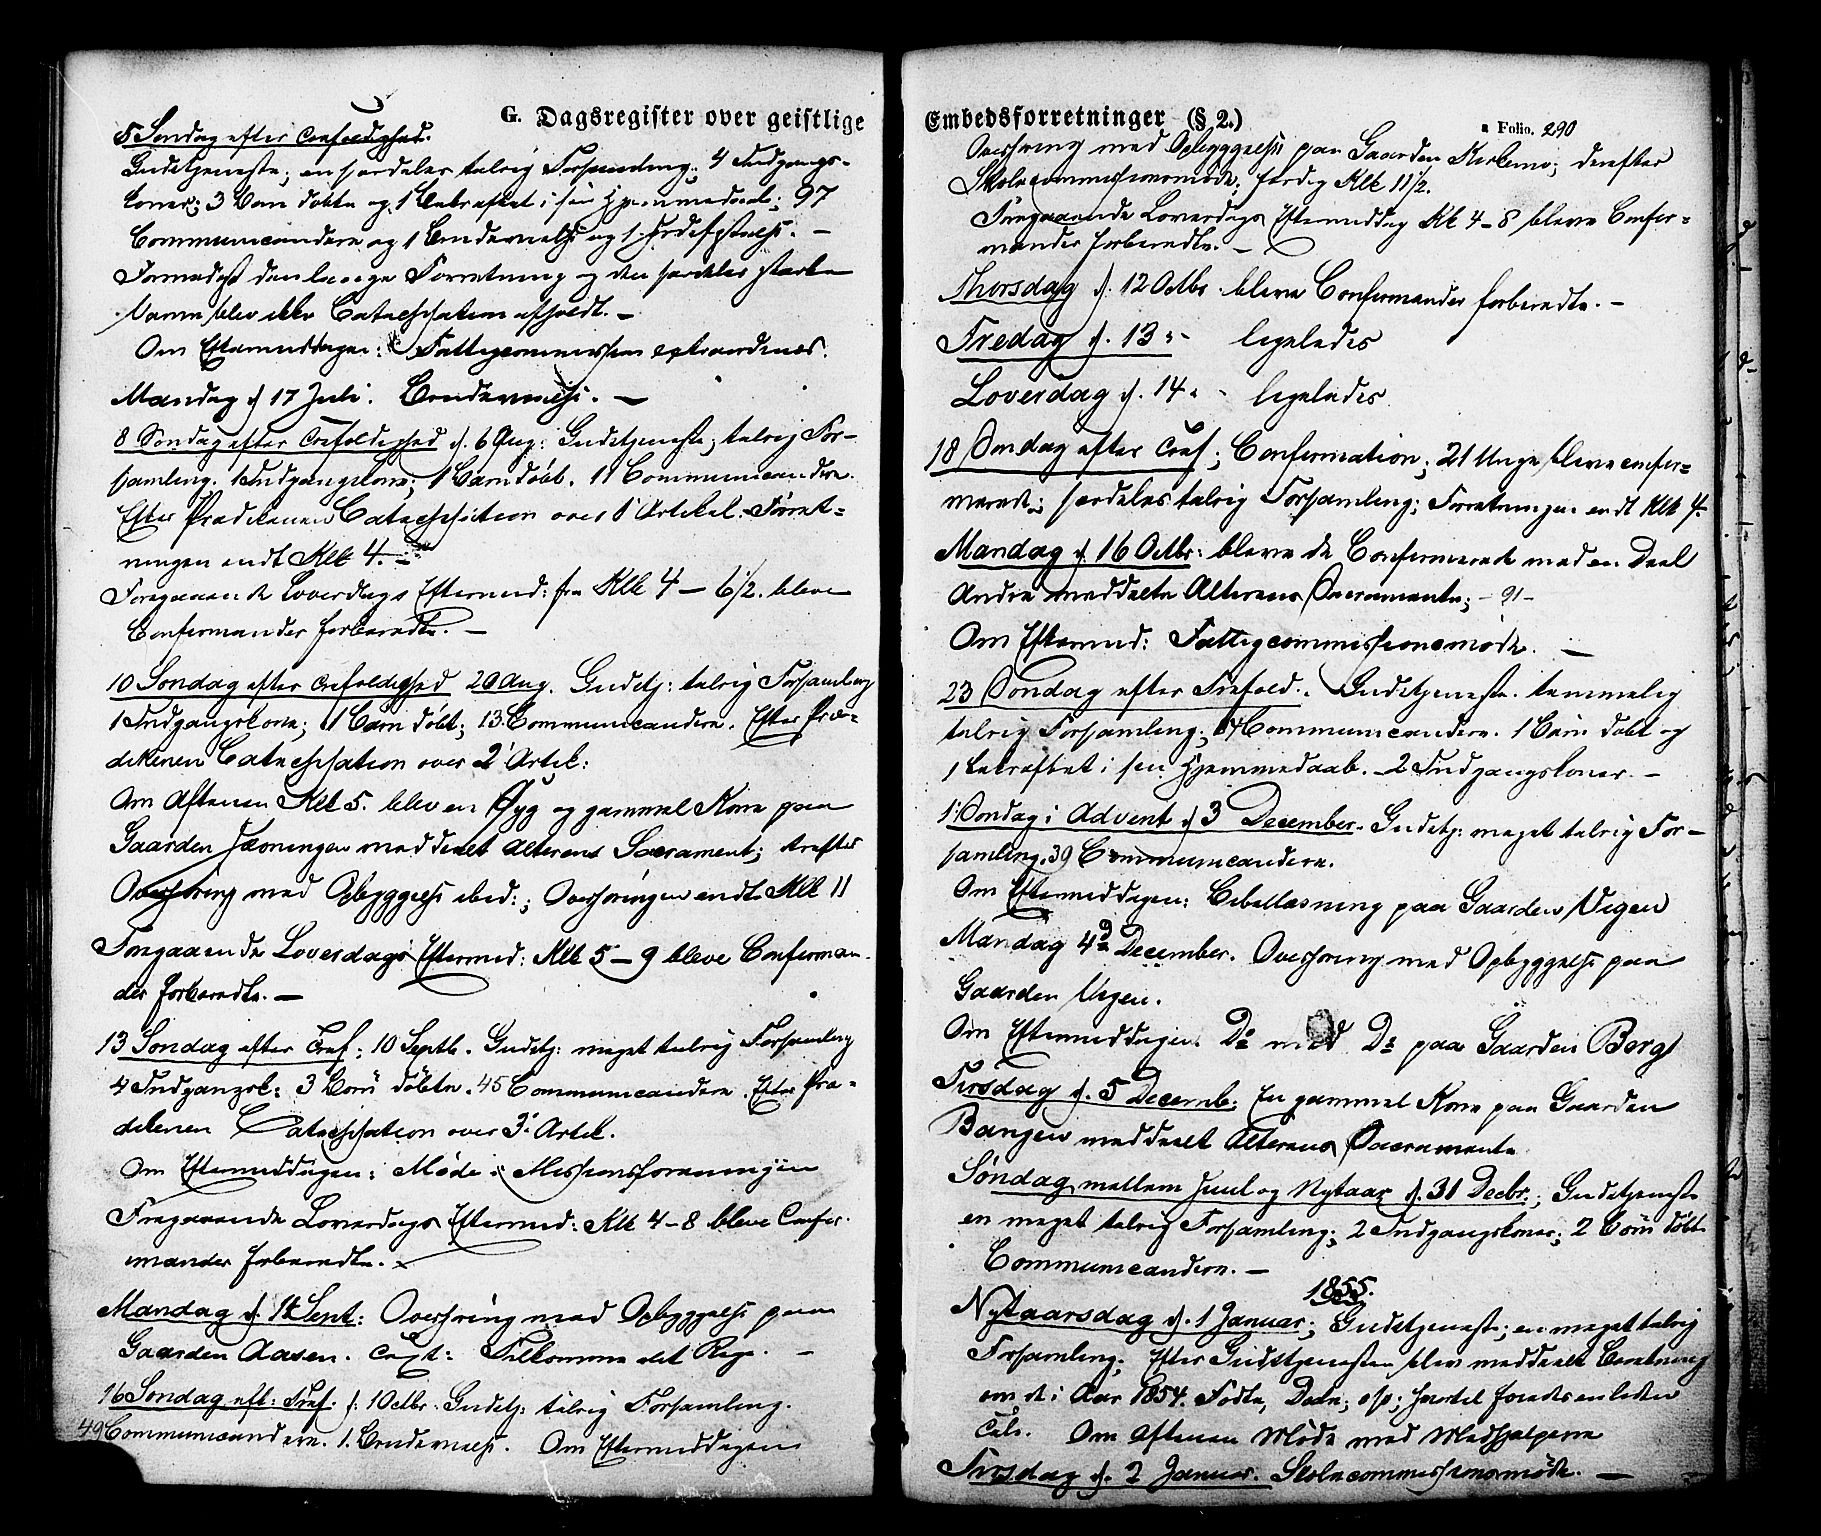 G. Dagsregister over geistlige
5 Søndag efter Trefoldighed.
Gudstjeneste; en særdeles talrig Forsamling; 4 Indgangs-
koner; 3 Børn døbte og 1 bekræftet i sin Hjemmedaab; 97
Communicandere og 1 Brudevielse og 1 Jordfæstelse. —
Formedelst den lange Forretning og den særdeles stærke
Varme blev ikke Catechisation afholdt. —
Om Eftermiddagen: Fattigcommission extraordinær.
Mandag d. 17 Juli. Brudevielse. —
8 Søndag efter Trefoldighed d. 6 Aug: Gudstjeneste; talrig For-
samling. 1 Indgangskone; 1 Barn døbt. 11 Communicandere.
Efter Prædikenen Catechisation over 1 Artikel. Forret-
ningen endt Klk 4. —
Foregaaende Løverdags Eftermid: fra Klk 4 — 6 1/2. bleve
Confirmander forberedte. —
10 Søndag efter Trefoldighed 20 Aug. Gudstj: talrig Forsamling
1 Indgangskone; 1 Barn døbt; 13 Communicandere. Efter Præ-
dikenen Catechisation over 2' Artik:
Om Aftenen Klk 5. blev en syg og gammel Kone paa
Gaarden meddeelt Alterens Sacrament; derefter
Overhøring med Opbyggelse ibid:; Overhøringen endt Klk 11
Foregaaende Løverdags Eftermid: Klk 5 — 9 bleve Confirman-
der forberedte. —
13 Søndag efter Tref; 10 Septb. Gudstj: meget talrig Forsamling
4 Indgangsk: 3 Børn døbte. 45 Communicandere. Efter Præ-
dikenen Catechisation over 3' Artik.
Om Eftermiddagen: Møde i Missionsforeningen
Foregaaende Løverdags Eftermid: Klk 4 — 8 bleve Confir-
mander forberedte. —
Mandag d. Sept: Overhøring med Opbyggelse paa
Gaarden Aasen. —
16 Søndag eft: Tref. d. 1 Octbr. Gudstj: talrig Forsamling.
49 Communicandere. 1 Brudevielse. Om Eftermiddagen
Embedsforretninger (§ 2.)
a Folio. 290
Overhøring med Opbyggelse paa Gaarden Kirkemo; derefter
Skolecommissionsmøde; færdig Klk 11 1/2.
Foregaaende Løverdags Eftermiddag Kl 4 — 8 bleve Confir-
mander forberedte. —
Thorsdag d. 12 Octbr. bleve Confirmander forberedte. —
Fredag d. 13 — ligeledes
Løverdag d. 14 - ligeledes
18 Søndag efter Tref; Confirmation; 21 Unge bleve confir-
merede; særdeles talrig Forsamling; Forretningen endt Klk 4.
Mandag d. 16 Octbr: bleve de Confirmerede med en Deel
Andre meddeelte Alterens Sacramente; — 91 —
Om Eftermid: Fattigcommissionsmøde. —
23 Søndag efter Trefold. Gudstjeneste. temmelig
talrig Forsamling; Communicandere. 1 Barn døbt og
1 bekræftet i sin Hjemmedaab. — 2 Indgangskoner. —
1 Søndag i Advent d. 3 December. Gudstj: meget talrig For-
samling. 39 Communicandere.
Om Eftermiddagen: Bibellæsning paa Gaarden Vigen
Mandag 4de December. Overhøring med Opbyggelse paa
Gaarden Vigen.
Om Eftermiddagen Do med Do paa Gaarden Bergs
Tirsdag d. 5 Decemb: En gammel Kone paa Gaarden
Bangen meddeelt Alterens Sacramente
Søndag mellem Juul og Nytaar d. 31 Decbr.; Gudstjeneste
en meget talrig Forsamling; 2 Indgangskoner; 2 Børn døbt
Communicandere. —
1855.
Nytaarsdag d. 1 Januar; Gudstjeneste; en meget talrig
Forsamling; Efter Gudstjenesten blev meddeelt Beretning
om de i Aar 1854. Fødte, Døde;
Om Aftenen Møde med Medhjelperne
Tirsdag d. 2 Januar. Skolecommissionsmøde. —